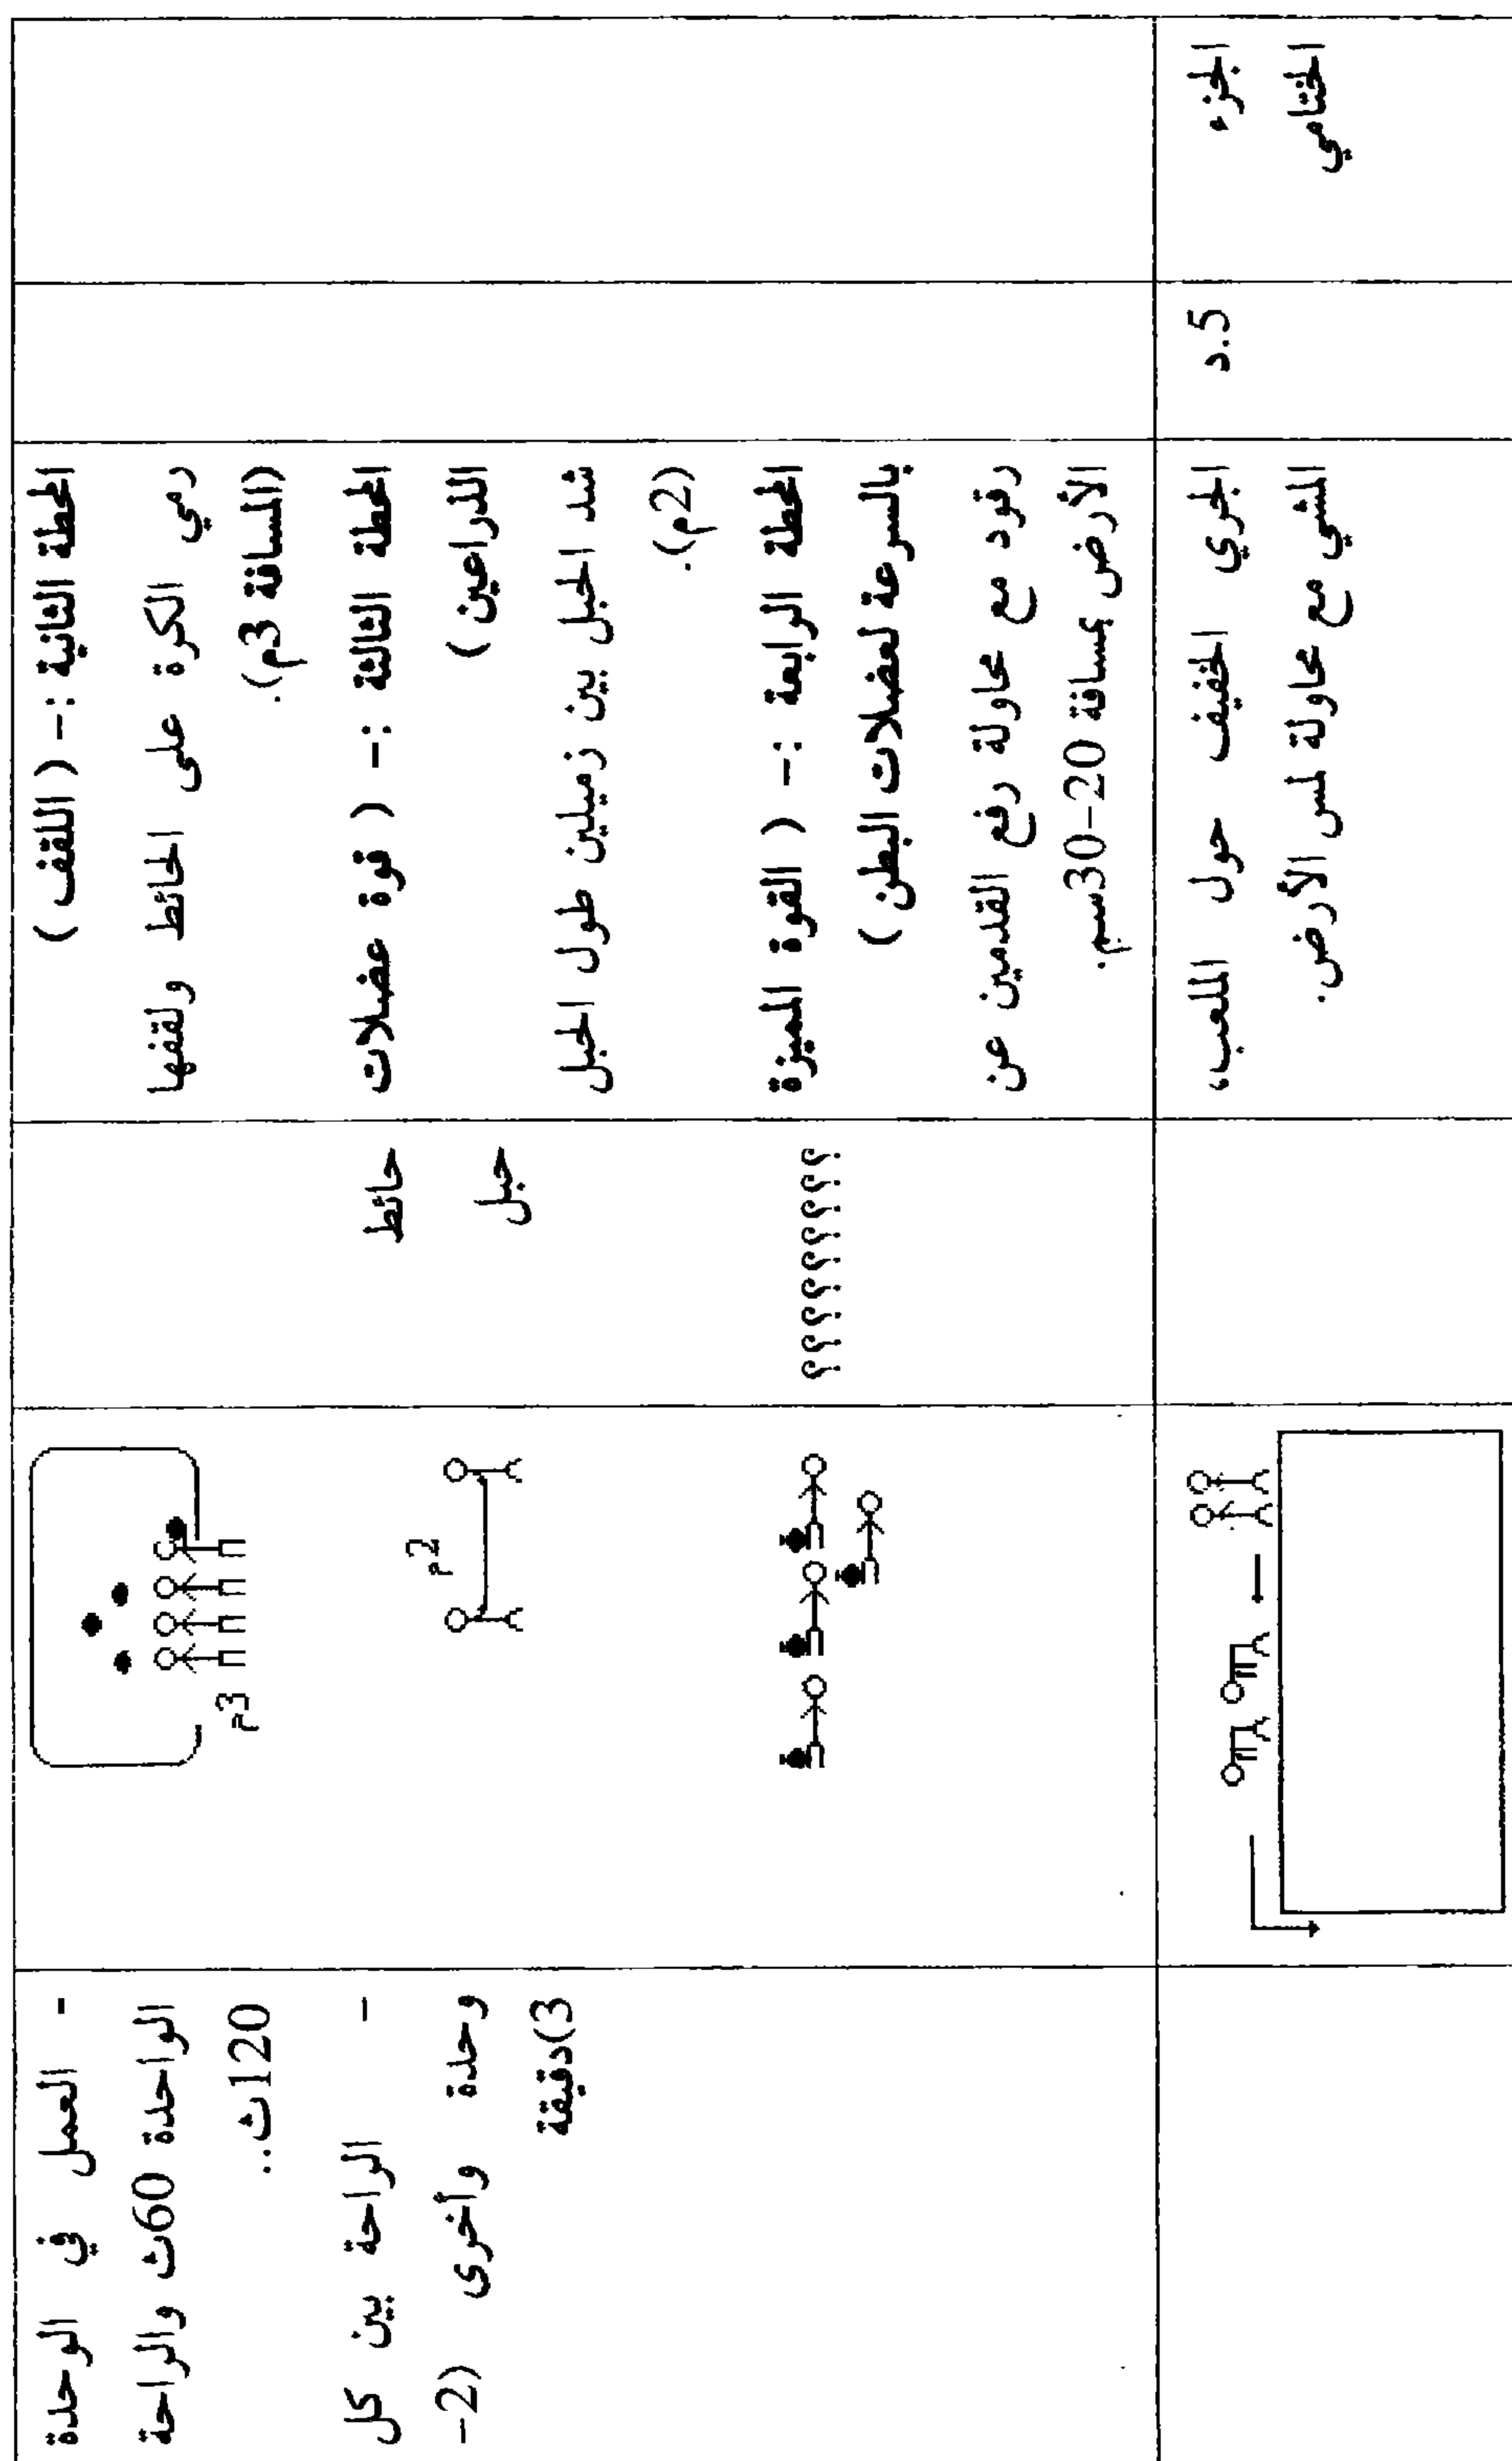 المحطة الثانية :– ( اللقف )
رمي الكرة على الحائط ولقفها
(المسافة 3م).
المحطة الثالثة :– ( قوة عضلات
الذراعين )
شد الحبل بين زميلين طول الحبل
(2م).
المحطة الرابعة :– ( القوة المميزة
بالسرعة لعضلات البطن )
رقود مع محاولة رفع القدمين عن
الأرض بمسافة 20–30سم.
حائط
حبل
؟؟؟؟؟؟؟؟؟
م3
م2
- العمل في الوحدة
الواحدة 60ث والراحة
120ث..
- الراحة بين كل
وحدة وأخرى (2-
3)دقيقة
الجزء
الختامي
5.د
الجري الخفيف حول الملعب،
المشي مع محاولة لمس الأرض.